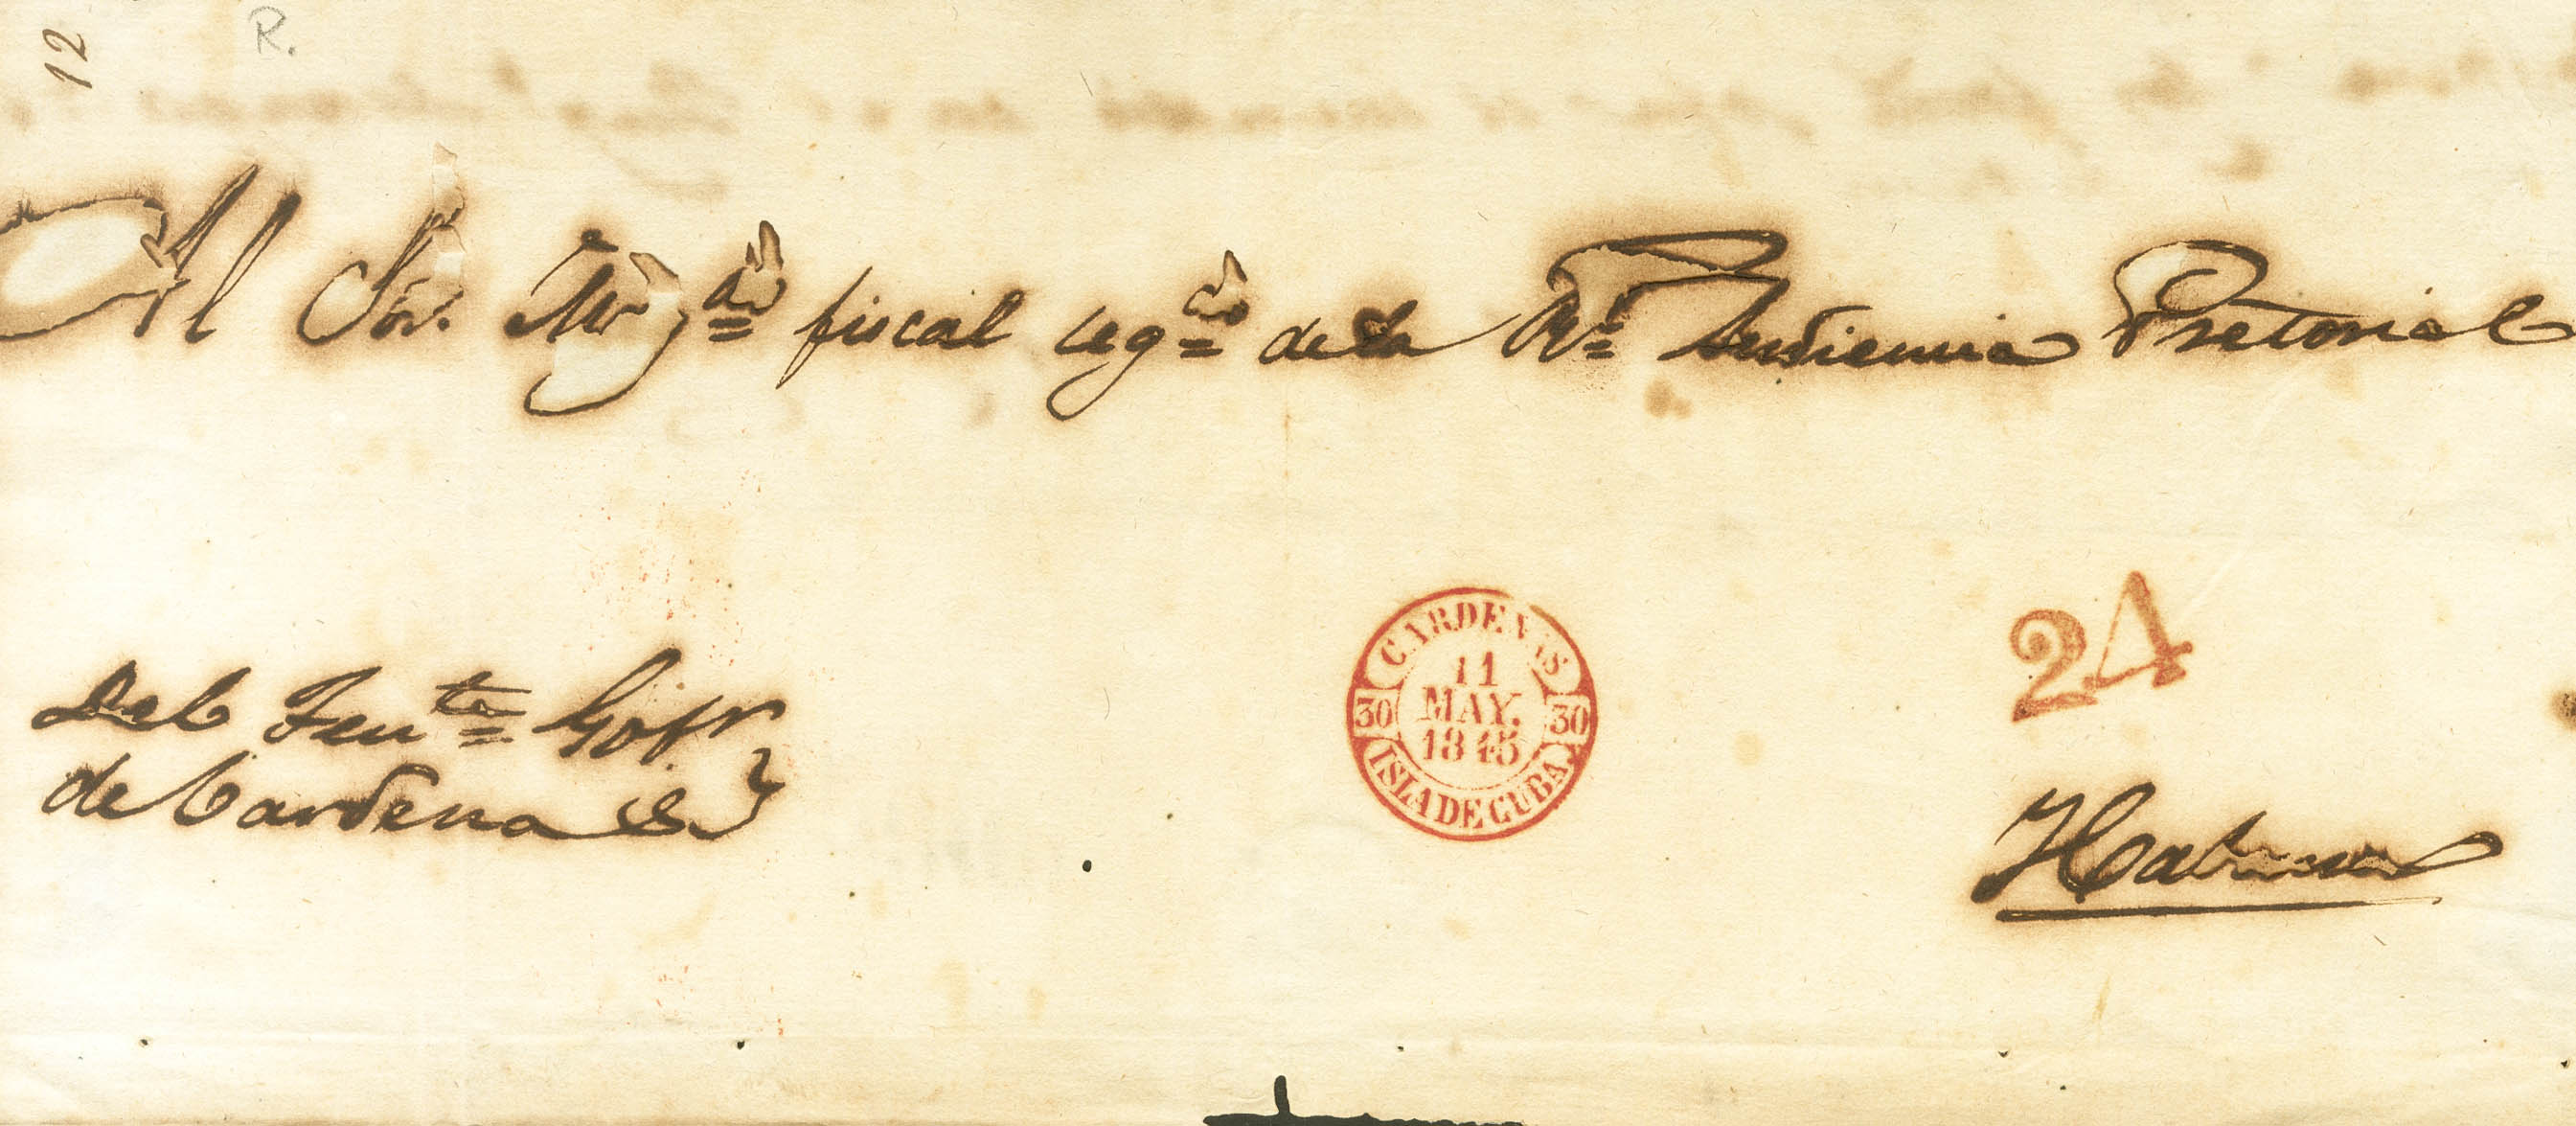 12
R.
Al Sor. fiscal seg.do de la Rl. Audiencia Pretorial
CARDENAS
11
MAY.
1845
30 30
ISLA DE CUBA.
24
Del Tente. Gobr
de Cardenas
Habana